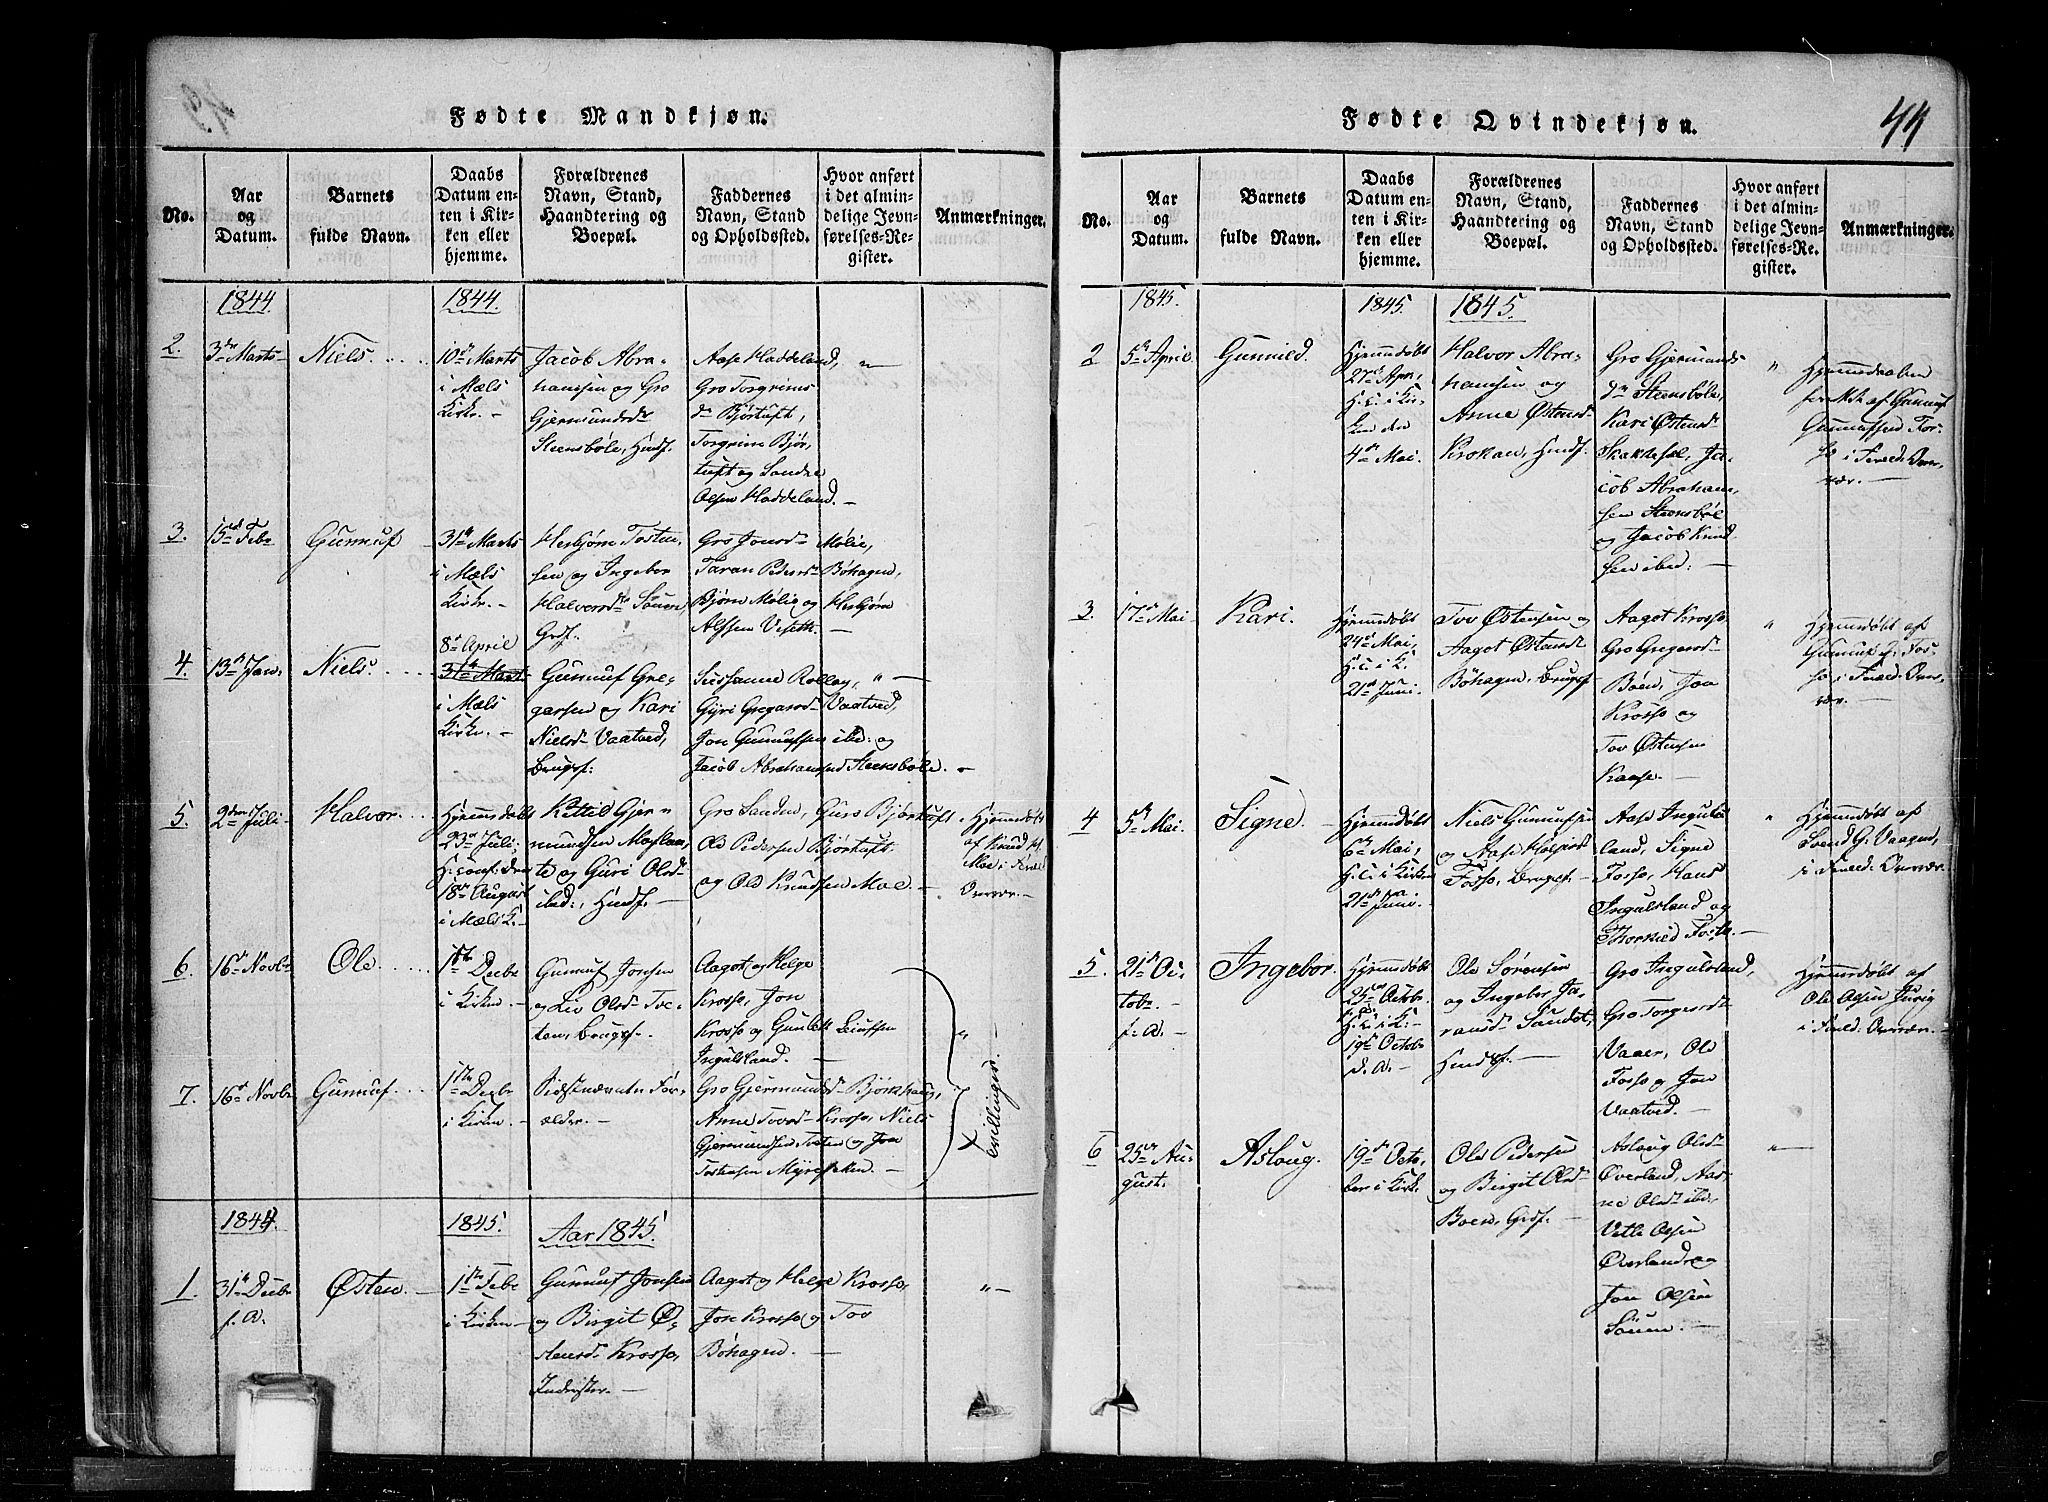 Fødte Mandkjøn.
No.
Aar
og
Datum.
Barnets
fulde Navn.
Daabs
Datum en-
ten i Kir-
ken eller
hjemme.
Forældrenes
Navn, Stand,
Haandtering og
Boepæl.
Faddernes
Navn, Stand
og Opholdssted.
Hvor anført
i det almin-
delige Jevn-
førelses-Re-
gister.
Anmærkninger.
1844
1844.
2.
3die Marts
Niels.
10de Marts
i Mæls
Kirke.
Jacob Abra-
hamsen og Gro
Gjermundsd.
Steensbøle, Huusf.
Aase Haddeland,
Gro Torgrims
dr. Bjørtuft,
Torgrim Bjør-
tuft og Sondre
Olsen Haddeland.
3.
Febr.
Gunnuf
31te Marts
i Mæls
Kirke.
Herbjørn Tosten-
sen og Ingebor
Halvorsd.
Grdf.
Gro Jonsd. Mølie,
Taran Pedersd. Bøhagen,
Bjørn Mølie og Herbjørn
Alfsen Veseth.
4.
13de Jan.
Niels.
8de April
31te Marts
i Mæls
Kirke.
Gunnuf Gre-
garsen og Kari
Nielsd. Vaatved,
Brugsf.
Sussanne Rollag,
Gyri Gregarsd. Vaatved,
Jon Gunnufsen ibd: og
Jacob Abrahamsen Steensbøle.
5.
2den Juli
Halvor.
Hjemmedøbt
23de Juli,
H: conf: den
18de August
i Mæls K.
Kittil Gjer-
mundsen Moflan-
te og Guri Olsd.
ibd:, Huusf.
Gro Sanden, Guro Bjørtuft
Ole Pedersen Bjørtuft
og Ole Knudsen Moe.
Hjemmedøbt
af Knud H.
Moe i
Overvær.
6.
16de Novbr.
Ole.
1ste Decbr.
i Kirken.
Gunnuf Jonsen
og Liv Olsd. Tve-
ten, Brugsf.
Aagot og Helge
Krosso, Jon
Krosso og Gunleik Leivssen
Ingulsland.
7.
16de Novbr.
Gunnuf.
1ste Decbr.
i Kirken.
Sidstnævnte For-
ældre.
Gro Gjermundsd. Bjørkhaug,
Anne Tovsd. Krosso, Niels
Gjermundsen Tveten og Jon
Tostensen Myrebakken.
Tvillinger.
1844.
1845.
Aar 1845.
1.
31te Decbr.
f. A.
Østen.
1ste Febr.
i Kirken.
Gunnuf Jonsen
og Birgit Ø-
stensd. Krosso,
Inderster.
Aagot og Helge Krosso,
Jon Krosso og Tov
Bøhagen.
Fødte Qvindekjøn.
44
No.
Aar
og
Datum.
Barnets
fulde Navn.
Daabs
Datum en-
ten i Kir-
ken eller
hjemme.
Forældrenes
Navn, Stand,
Haandtering og
Boepæl.
Faddernes
Navn, Stand
og Opholdssted.
Hvor anført
i det almin-
delige Jevn-
førelses-Re-
gister.
Anmærkninger.
1845.
1845.
1845.
2
5te April.
Gunild.
Hjemmedøbt
27de Apr.,
H. C. i Kir-
ken den
4de Mai.
Halvor Abra-
hamsen og
Anne Østensd.
Krokan, Huusf.
Gro Gjermunds
dr. Steensbøle,
Kari Østensd.
Ja-
cob Abraham-
sen Steensbøl
og Jacob Knud-
sen ibd:
Hjemmedaaben
af Gunnuf
Gunnufsen Fos-
so i Overvær.
3.
17de Mai
Kari.
Hjemmedøbt
24de Mai,
H. C. i K.
21de Juni.
Tov Østensen og
Aagot Østensd.
Bøhagen, Brugsf.
Aagot Krosso
Gro Gregarsd.
Bøen, Jon
Krosso og
Tov Østensen
Kaase.
Hjemmedøbt af
Gunnuf G. Fos-
so i Overvær.
4
5te Mai.
Signe.
Hjemmedøbt
6te Mai,
H. C. i Kirken
21de Juni.
Niels Gunnufsen
og Aase
Fosso, Brugsf.
Aase Inguls-
land, Signe
Fosso, Hans
Ingulsland og
Thorkild Fosso.
Hjemmedøbt af
Svend G. Vaagen,
i Overvær.
5.
21de Oc-
tobr.
f. A.
Ingebor.
Hjemmedøbt
25de Octobr.
H. C. i K.
19de Octobr.
d. A.
Ole Sørensen
og Ingebor Ja-
Huusf.
Gro Ingulsland,
Gro Torgersd.
Vaaer, Ole
Fosso og Jon
Vaatved.
Hjemmedøbt af
Ole Olsen
i Overvær.
6
25de Au-
gust.
Aslaug.
19de Octo-
ber i Kirk.
Ole Pedersen
og Birgit Olsd.
Boen, Grdf.
Aslaug Olsd.
Øverland, Aas-
ne Olsd. ibd.,
Vetle Olsen
Øverland og
Jon Olsen